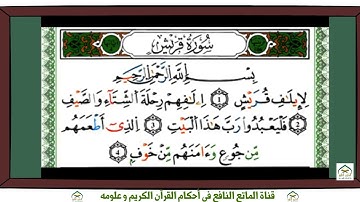 سُورَةُ قُرَيْشٍ
بِسْمِ اللَّهِ الرَّحْمَٰنِ الرَّحِيمِ
لِإِيلَٰفِ قُرَيْشٍ ١ إِۦلَٰفِهِمْ رِحْلَةَ الشِّتَآءِ وَالصَّيْفِ
٢ فَلْيَعْبُدُوا۟ رَبَّ هَٰذَا الْبَيْتِ ٣ الَّذِىٓ أَطْعَمَهُم
مِّن جُوعٍ وَءَامَنَهُم مِّنْ خَوْفٍۭ ٤
قناة الماتع النافع في أحكام القرآن الكريم وعلومه